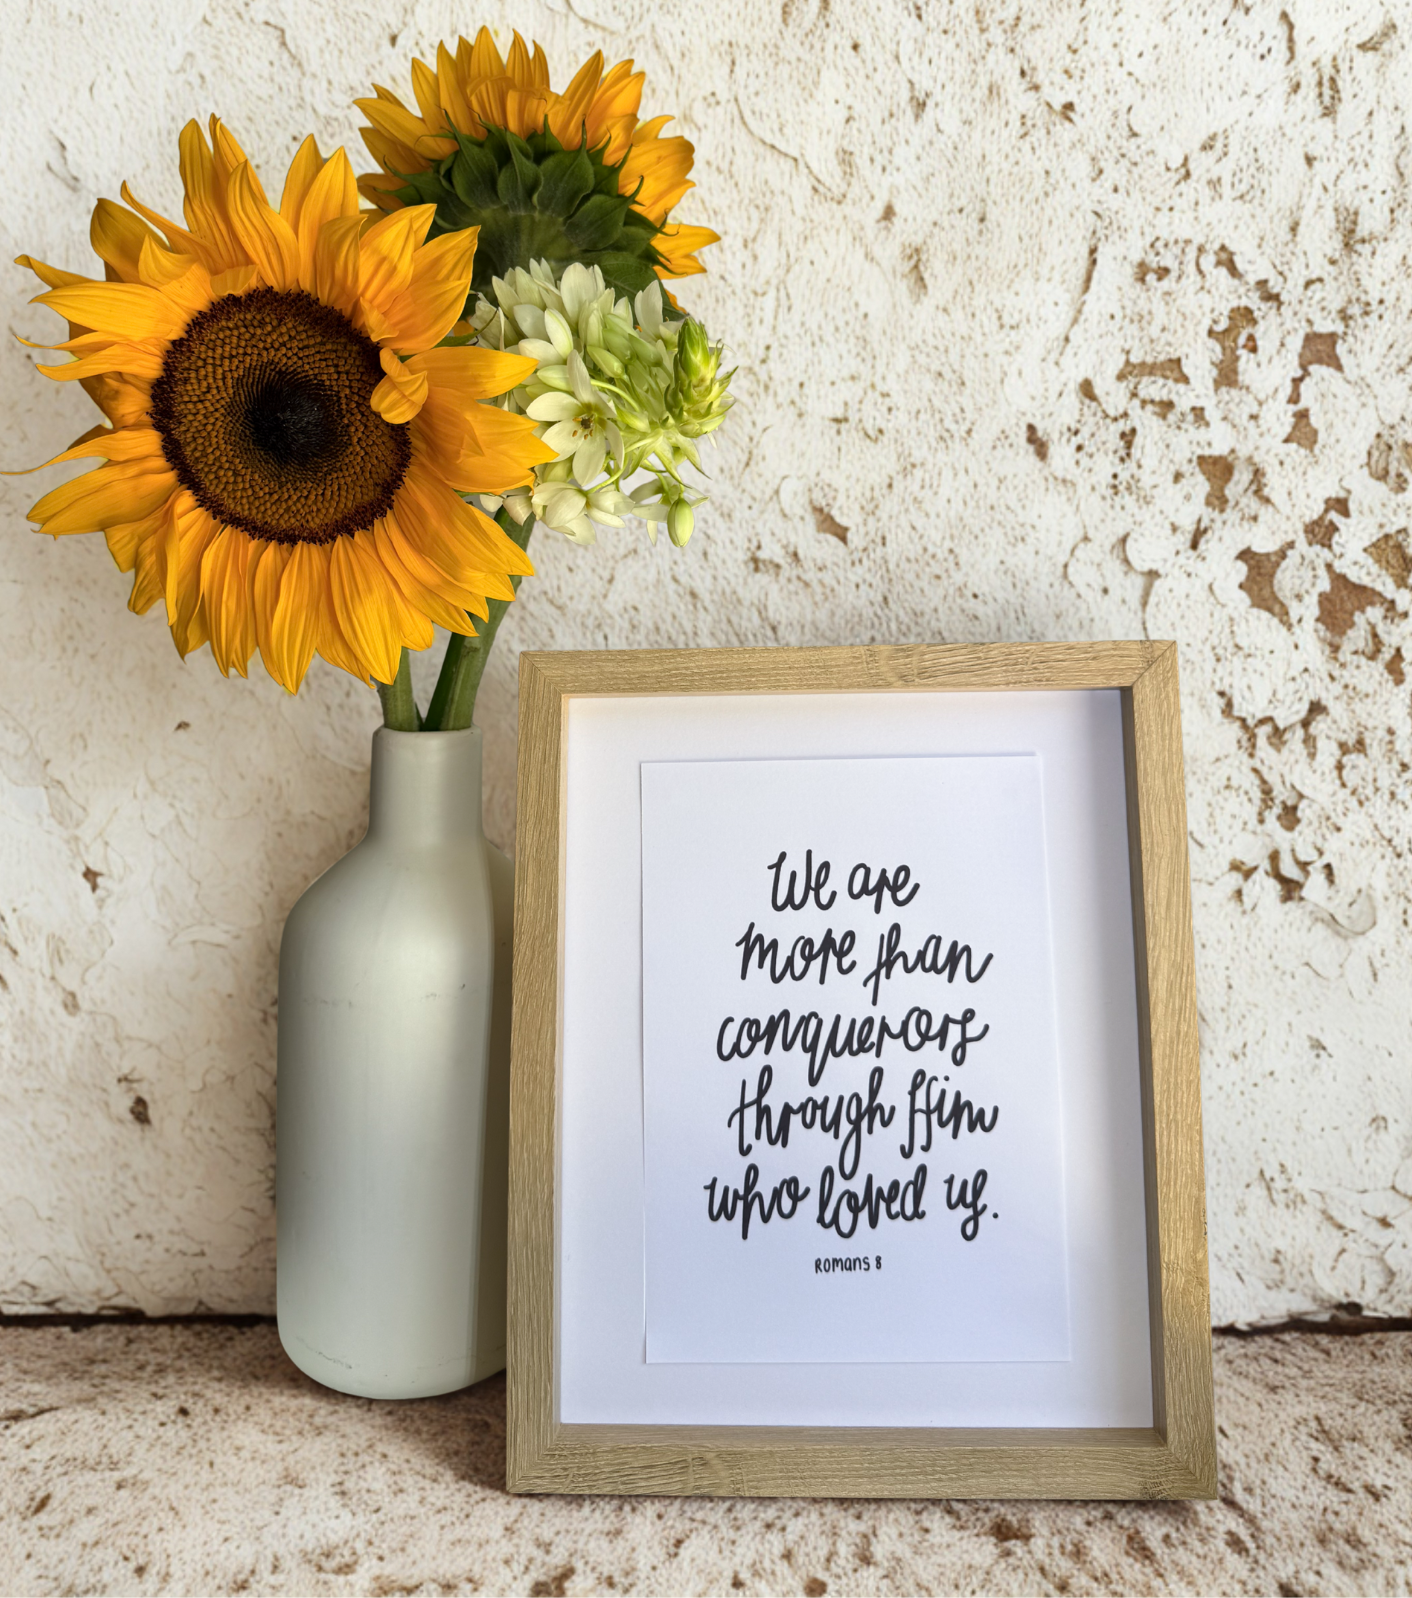 We are
more than
conquerors
through Him
who loved us.
Romans 8